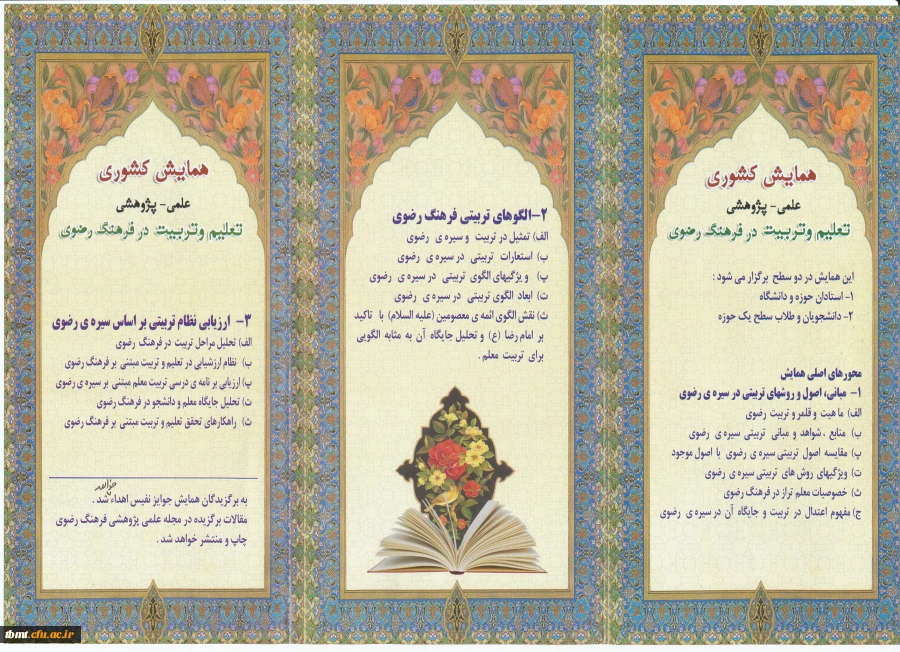 همایش کشوری
علمی- پژوهشی
تعلیم وتربیت در فرهنگ رضوی
این همایش در دو سطح برگزار می شود :
۱- استادان حوزه و دانشگاه
۲- دانشجویان و طلاب سطح یک حوزه
محورهای اصلی همایش
۱- مبانی، اصول و روشهای تربیتی در سیره ی رضوی
الف) ما هیت و قلمرو تربیت رضوی
ب) منابع ، شواهد و مبانی تربیتی سیره ی رضوی
پ) مقایسه اصول تربیتی سیره ی رضوی با اصول موجود
ت) ویژگیهای روش های تربیتی سیره ی رضوی
ث) خصوصیات معلم تراز در فرهنگ رضوی
ج) مفهوم اعتدال در تربیت و جایگاه آن در سیره ی رضوی
۲-الگوهای تربیتی فرهنگ رضوی
الف) تمثیل در تربیت و سیره ی رضوی
ب) استعارات تربیتی در سیره ی رضوی
پ) و یژگیهای الگوی تربیتی در سیره ی رضوی
ت) ابعاد الگوی تربیتی در سیره ی رضوی
ث) نقش الگوی ائمه ی معصومین (علیه السلام) با تاکید
بر امام رضا (ع) و تحلیل جایگاه آن به مثابه الگویی
برای تربیت معلم .
همایش کشوری
علمی- پژوهشی
تعلیم وتربیت در فرهنگ رضوی
۳- ارزیابی نظام تربیتی بر اساس سیره ی رضوی
الف) تحلیل مراحل تربیت در فرهنگ رضوی
ب) نظام ارزشیابی در تعلیم و تربیت مبتنی بر فرهنگ رضوی
پ) ارزیابی بر نامه ی درسی تربیت معلم مبتنی بر سیره ی رضوی
ت) تحلیل جایگاه معلم و دانشجو در فرهنگ رضوی
ث) راهکارهای تحقق تعلیم و تربیت مبتنی بر فرهنگ رضوی
به برگزیدگان همایش جوایز نفیس اهداء شد .
مقالات برگزیده در مجله علمی پژوهشی فرهنگ رضوی
چاپ و منتشر خواهد شد .
tbmt.cfu.ac.ir